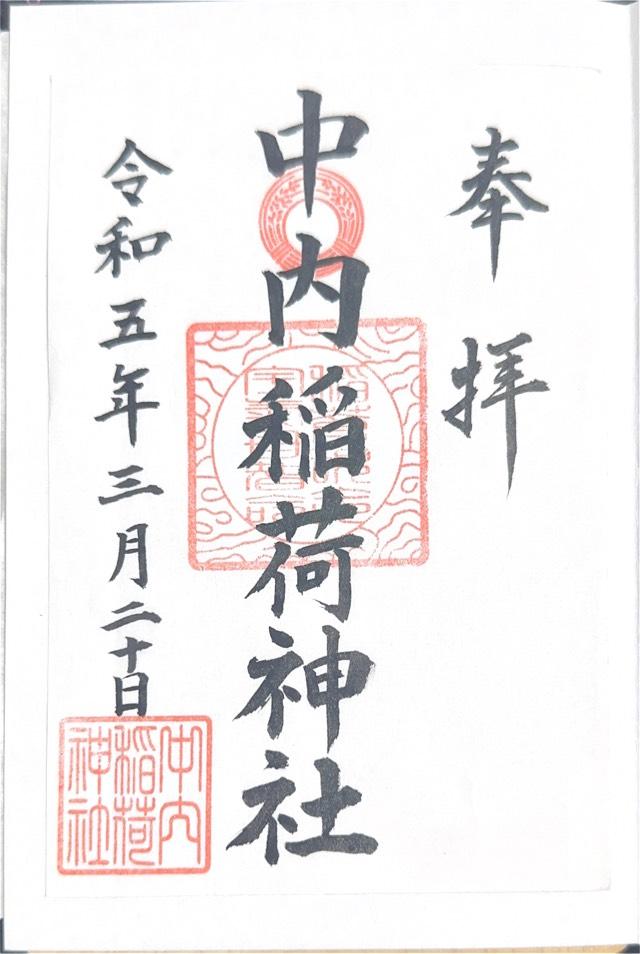 奉拝
中内稲荷神社
令和五年三月二十日
中内
稲荷
神社